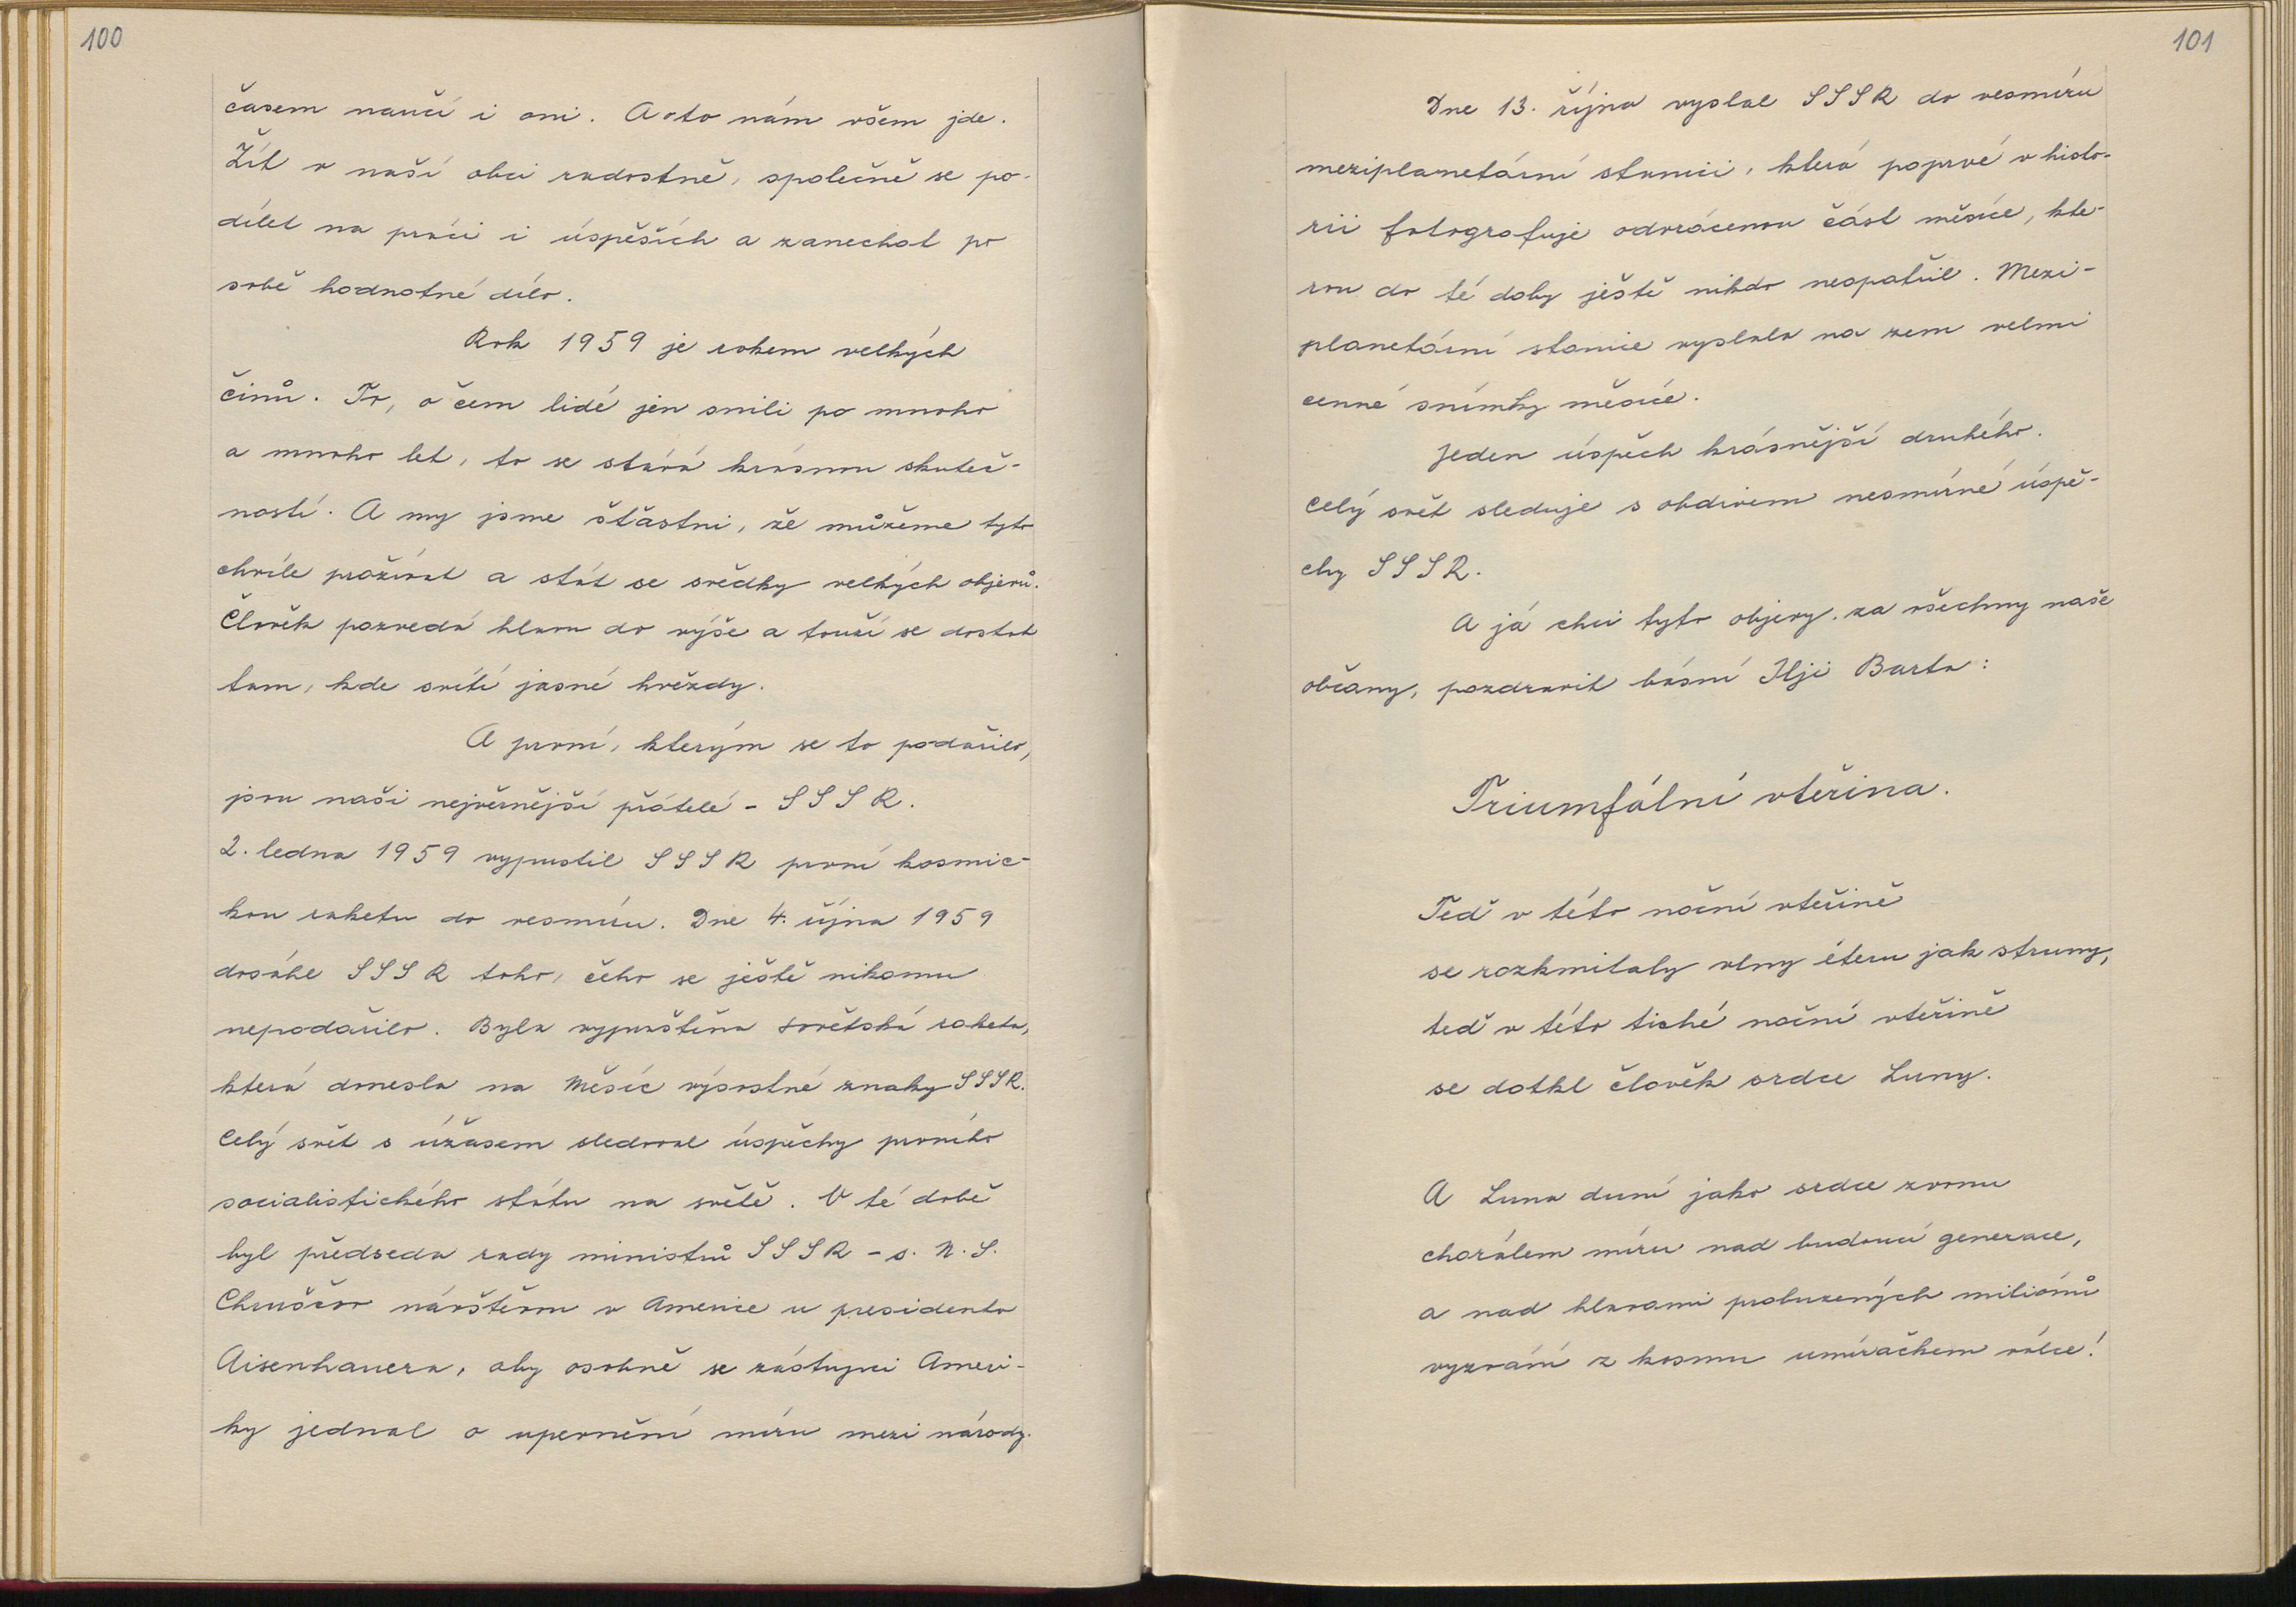 100
časem naučí i oni. A o to nám všem jde.
Žít v naší obci radostně, společně se po-
dílet na práci i úspěších a zanechat po
sobě hodnotné dílo.
Rok 1959 je rokem velkých
činů. To, o čem lidé jen snili po mnoho
a mnoho let, to se stává krásnou skuteč-
ností. A my jsme šťastni, že můžeme tyto
chvíle prožívat a stát se svědky velkých objevů.
Člověk pozvedá hlavu do výše a touží se dostat
tam, kde svítí jasné hvězdy.
A první, kterým se to podařilo,
jsou naši nejvěrnější přátelé - SSSR.
2. ledna 1959 vypustil SSSR první kosmic-
kou raketu do vesmíru. Dne 4. října 1959
dosáhl SSSR toho, čeho se ještě nikomu
nepodařilo. Byla vypuštěna sovětská raketa,
která donesla na Měsíc výsostné znaky SSSR.
Celý svět s úžasem sledoval úspěchy prvního
socialistického státu na světě. V té době
byl předseda rady ministrů SSSR - s. N. S.
Chruščov návštěvou v Americe u presidenta
Aisenhauera, aby osobně se zástupci Ameri-
ky jednal o upevnění míru mezi národy.
101
Dne 13. října vyslal SSSR do vesmíru
meziplanetární stanici, která poprvé v histo-
rii fotografuje odvrácenou část měsíce, kte-
rou do té doby ještě nikdo nespatřil. Mezi-
planetární stanice vyslala na zem velmi
cenné snímky měsíce.
Jeden úspěch krásnější druhého.
Celý svět sleduje s obdivem nesmírné úspě-
chy SSSR.
A já chci tyto objevy, za všechny naše
občany, pozdravit básní Ilji Barta:
Triumfální vteřina.
Teď v této noční vteřině
se rozkmitaly vlny éteru jak struny,
teď v této tiché noční vteřině
se dotkl člověk srdce Luny.
A Luna duní jako srdce zvonu
chorálem míru nad budoucí generace,
a nad hlavami probuzených miliónů
vyzvání z kosmu umíráčkem válce!